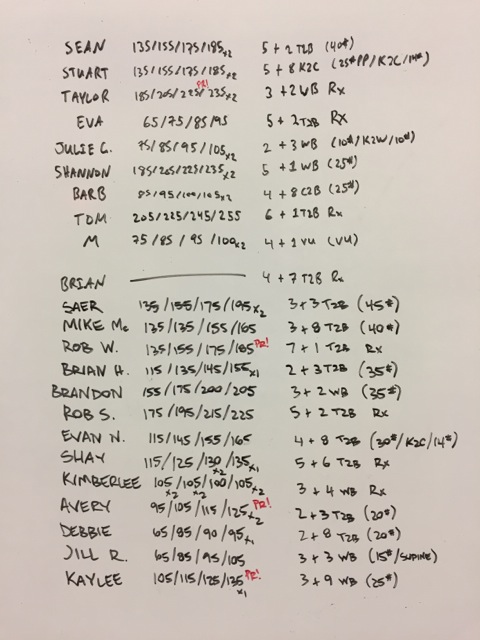 SEAN 135/155/175/185x2 5 + 2 T2B (40#)
STUART 135/155/175/185x2 5 + 8 K2C (25#PP/K2C/14#)
TAYLOR 185/205/225PR!/235x2 3 + 2 WB Rx
EVA 65/75/85/95 5 + 2 T2B Rx
JULIE C. 75/85/95/105x2 2 + 3 WB (10#/K2W/10#)
SHANNON 185/205/225/235x2 5 + 1 WB (25#)
BARB 85/95/100/105x2 4 + 8 C2B (25#)
TOM 205/225/245/255 6 + 1 T2B Rx
M 75/85/95/100x2 4 + 1 VU (VU)
BRIAN 4 + 7 T2B Rx
SAER 135/155/175/195x2 3 + 3 T2B (45#)
MIKE Mc 135/135/155/165 3 + 8 T2B (40#)
ROB W. 135/155/175/185 PR! 7 + 1 T2B Rx
BRIAN H. 115/135/145/155x1 2 + 3 T2B (35#)
BRANDON 155/175/200/205 3 + 2 WB (35#)
ROB S. 175/195/215/225 5 + 2 T2B Rx
EVAN N. 115/145/155/165 4 + 8 T2B (30#/K2C/14#)
SHAY 115/125/130x2/135x1 5 + 6 T2B Rx
KIMBERLEE 105x2/105x2/100/105x2 3 + 4 WB Rx
AVERY 95/105/115/125x2 PR! 2 + 3 T2B (20#)
DEBBIE 65/85/90/95x1 2 + 8 T2B (20#)
JILL R. 65/85/95/105 3 + 3 WB (15#/SUPINE)
KAYLEE 105/115/125/135x1 PR! 3 + 9 WB (25#)